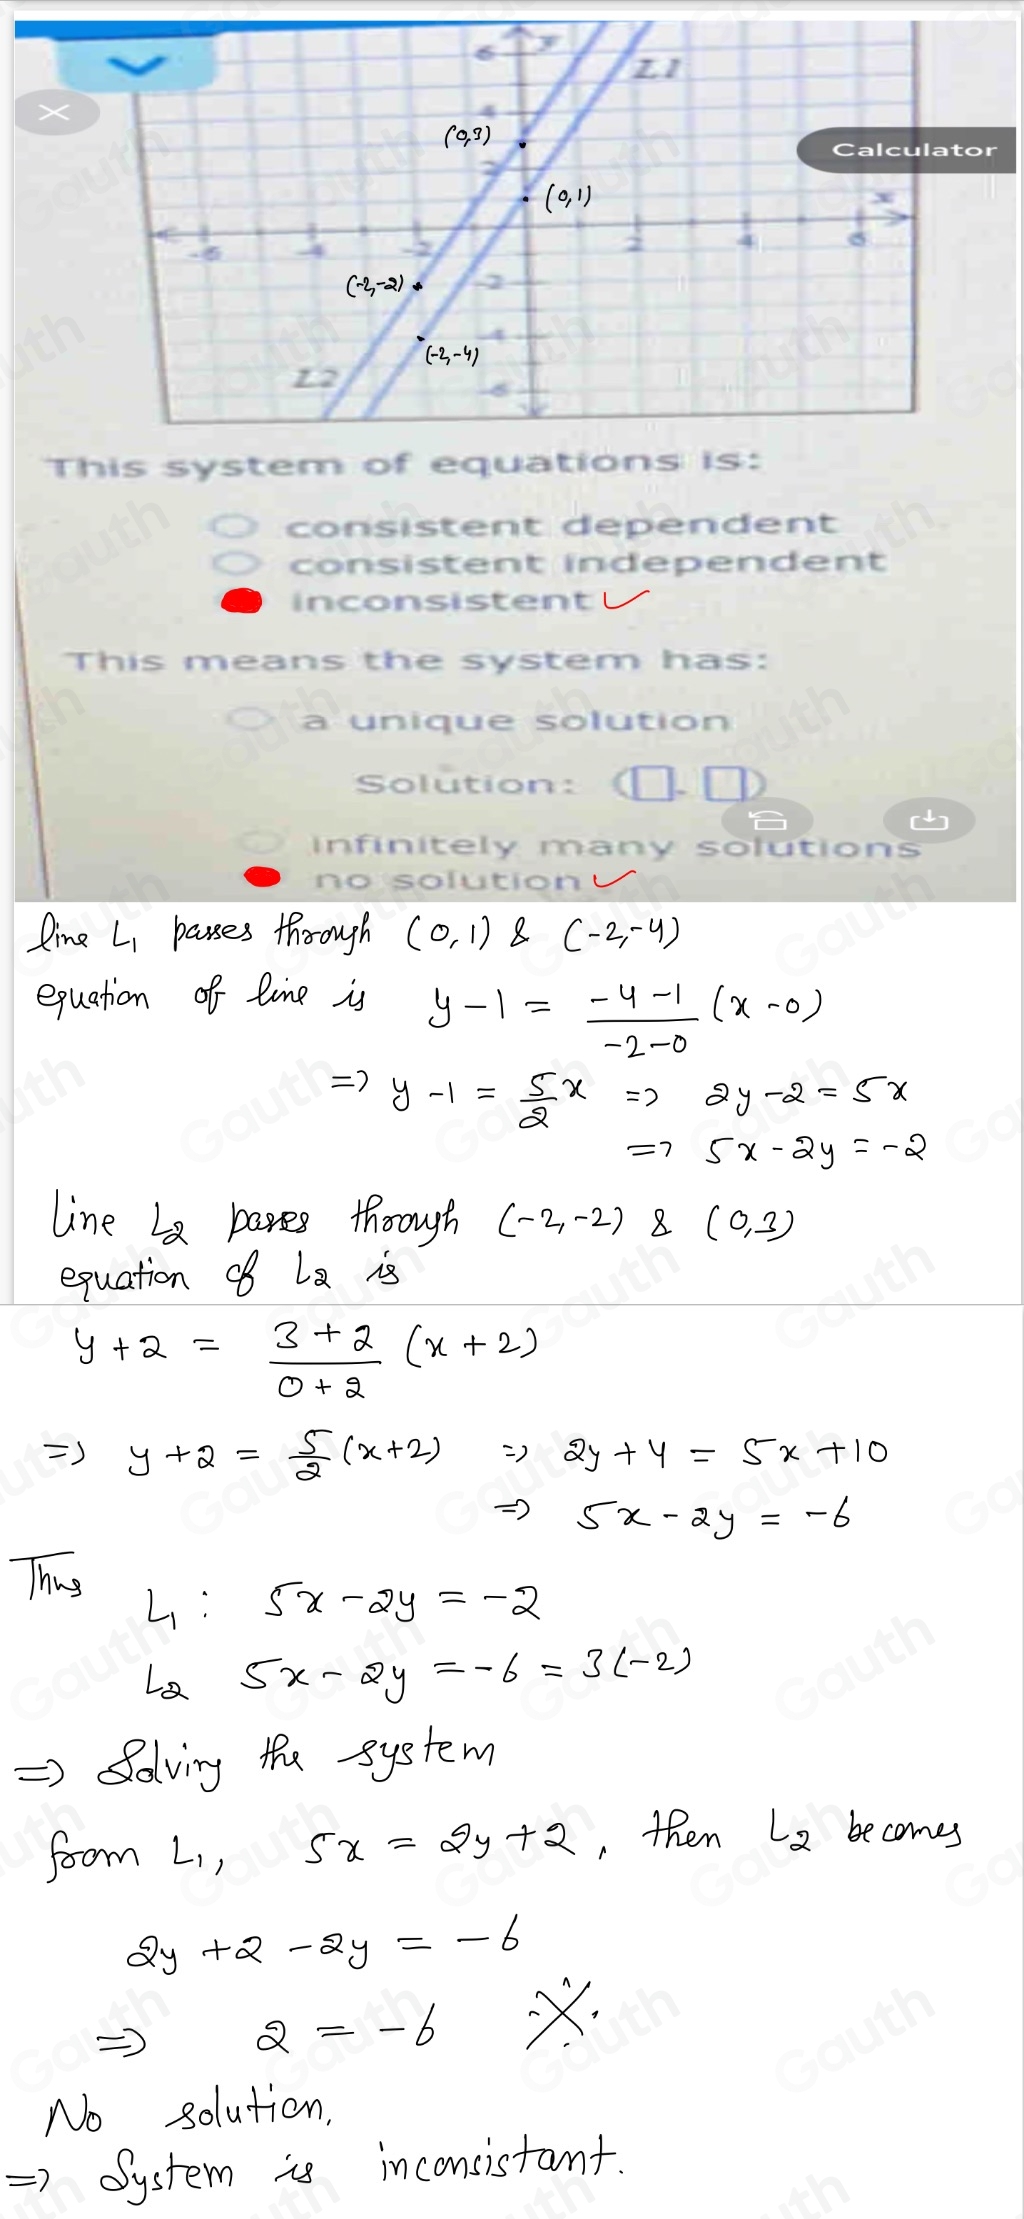 6 y
L1
4
(0,3)
Calculator
2
(0,1)
x
-6 -4 -2 2 4 6
(-2,-2)
-2
-4
(-2,-4)
L2
-6
This system of equations is:
consistent dependent
consistent independent
inconsistent ✓
This means the system has:
a unique solution
Solution: (□, □)
infinitely many solutions
no solution ✓
line L₁ passes through (0,1) & (-2,-4)
equation of line is y-1 = (-4-1)/(-2-0) (x-0)
=> y-1 = 5/2 x => 2y-2 = 5x
=> 5x-2y = -2
line L2 passes through (-2,-2) & (0,3)
equation of L2 is
y+2 = (3+2)/(0+2) (x+2)
=> y+2 = 5/2 (x+2) => 2y+4 = 5x+10
=> 5x-2y = -6
Thus
L₁: 5x-2y = -2
L2 5x-2y = -6 = 3(-2)
=> Solving the system
from L₁, 5x = 2y+2, then L2 becomes
2y+2-2y = -6
=> 2 = -6
No solution.
=> System is inconsistant.